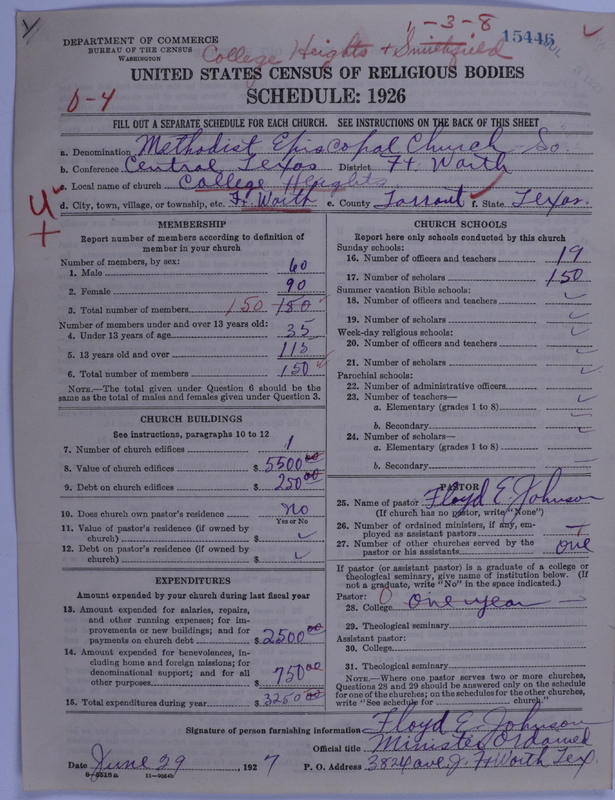 1-3-8
15446
DEPARTMENT OF COMMERCE
BUREAU OF THE CENSUS
WASHINGTON
College Heights & Smithfield
UNITED STATES CENSUS OF RELIGIOUS BODIES
SCHEDULE: 1926
0-4
FILL OUT A SEPARATE SCHEDULE FOR EACH CHURCH. SEE INSTRUCTIONS ON THE BACK OF THIS SHEET
a. Denomination Methodist Episcopal Church So.
b. Conference Central Texas District Ft. Worth
c. Local name of church College Heights
d. City, town, village, or township, etc. Ft. Worth e. County Tarrant f. State Texas.
MEMBERSHIP
Report number of members according to definition of
member in your church
Number of members, by sex:
1. Male 60
2. Female 90
3. Total number of members 150 150
Number of members under and over 13 years old:
4. Under 13 years of age 35
5. 13 years old and over 115
6. Total number of members 150
NOTE.—The total given under Question 6 should be the
same as the total of males and females given under Question 3.
CHURCH BUILDINGS
See instructions, paragraphs 10 to 12
7. Number of church edifices 1
8. Value of church edifices $ 5500 00
9. Debt on church edifices $ 250 00
10. Does church own pastor's residence no
Yes or No
11. Value of pastor's residence (if owned by
church) $ ✓
12. Debt on pastor's residence (if owned by
church) $ ✓
EXPENDITURES
Amount expended by your church during last fiscal year
13. Amount expended for salaries, repairs,
and other running expenses; for im-
provements or new buildings; and for
payments on church debt $ 2500 00
14. Amount expended for benevolences, in-
cluding home and foreign missions; for
denominational support; and for all
other purposes $ 750 00
15. Total expenditures during year $ 3250 00
CHURCH SCHOOLS
Report here only schools conducted by this church
Sunday schools:
16. Number of officers and teachers 19
17. Number of scholars 150
Summer vacation Bible schools:
18. Number of officers and teachers ✓
19. Number of scholars ✓
Week-day religious schools:
20. Number of officers and teachers ✓
21. Number of scholars ✓
Parochial schools:
22. Number of administrative officers
23. Number of teachers—
a. Elementary (grades 1 to 8) ✓
b. Secondary ✓
24. Number of scholars—
a. Elementary (grades 1 to 8)
b. Secondary
PASTOR
25. Name of pastor Floyd E. Johnson
(If church has no pastor, write "None")
26. Number of ordained ministers, if any, em-
ployed as assistant pastors
27. Number of other churches served by the
pastor or his assistants one
If pastor (or assistant pastor) is a graduate of a college or
theological seminary, give name of institution below. (If
not a graduate, write "No" in the space indicated.)
Pastor: 0
28. College one year
29. Theological seminary
Assistant pastor:
30. College
31. Theological seminary
NOTE.—Where one pastor serves two or more churches,
Questions 28 and 29 should be answered only on the schedule
for one of the churches; on the schedules for the other churches,
write "See schedule for church."
Signature of person furnishing information Floyd E. Johnson
Official title Minister Ordained
Date June 29, 1927 P. O. Address 3824 ave J. Ft Worth Tex.
8-5516a 11-9564b